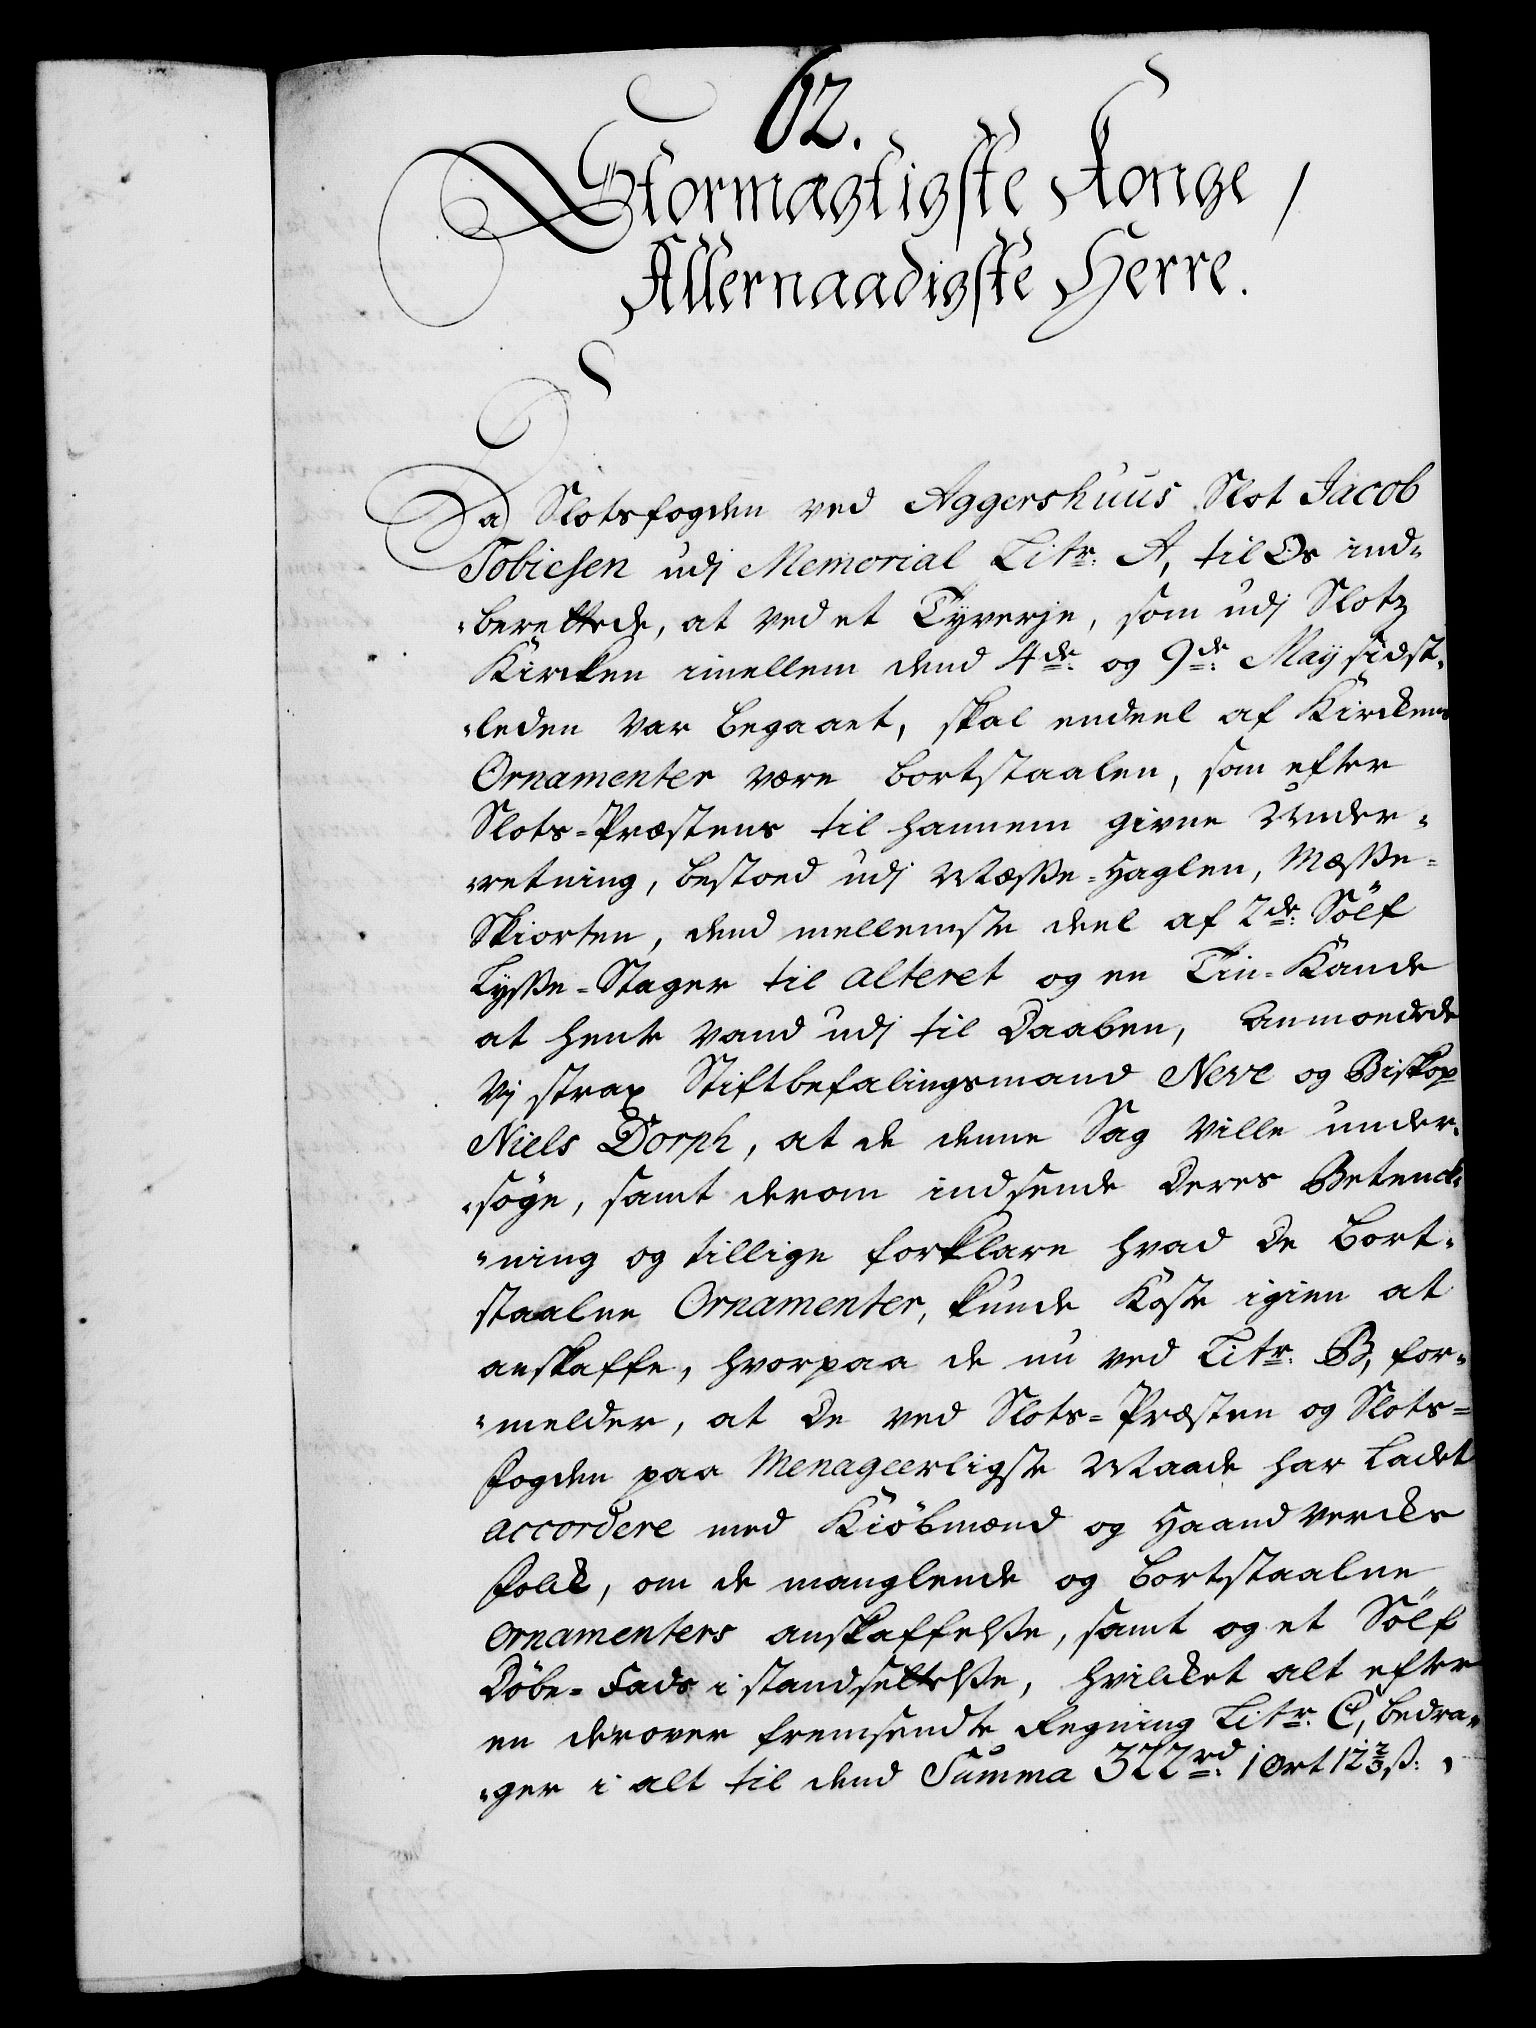 62.
Stormægtigste Konge /
Allernaadigste Herre.
Da Slotsfogden ved Aggershuus Slot Jacob
Tobiesen udj Memorial Litr: A, til Os ind-
-berettede, at ved et Tyverje, som udj Slotz
Kircken imellem dend 4de: og 9de: Maij sidst-
-leden var begaaet, skal endeel af Kirckens
Ornamenter være bortstaalen, som efter
Slots-Præstens til hannem givne Under-
-retning, bestoed udj Mæsse-Haglen, Mæsse-
Skiorten, dend mellemste deel af 2de: Sölf
Lysse-Stager til alteret og en Tin-Kande
at hente Vand udj til Daaben, anmoedede
Vj strax Stiftbefalingsmand Neve og Biskop
Niels Dorph, at de denne Sag ville under-
-söge, samt derom indsende Deres Betenck-
-ning og tillige forklare hvad De bort-
staalne Ornamenter, kunde koste igien at
anskaffe, hvorpaa de nu ved Litr: B, for-
-melder, at De ved Slots-Præsten og Slots-
fogden paa Menageerligste Maade har ladet
accordere med Kiöbmænd og Haandvercks
folck, om de manglende og bortstaalne
Ornamenters anskaffelsse, samt og et Sölf
Döbe-Fads istandsettelsse, hvilcket alt efter
en derover fremsendte Regning Litr: C, bedra-
-ger i alt til dend Summa 322rd: 1 Ort 12 2/3 ß: ,